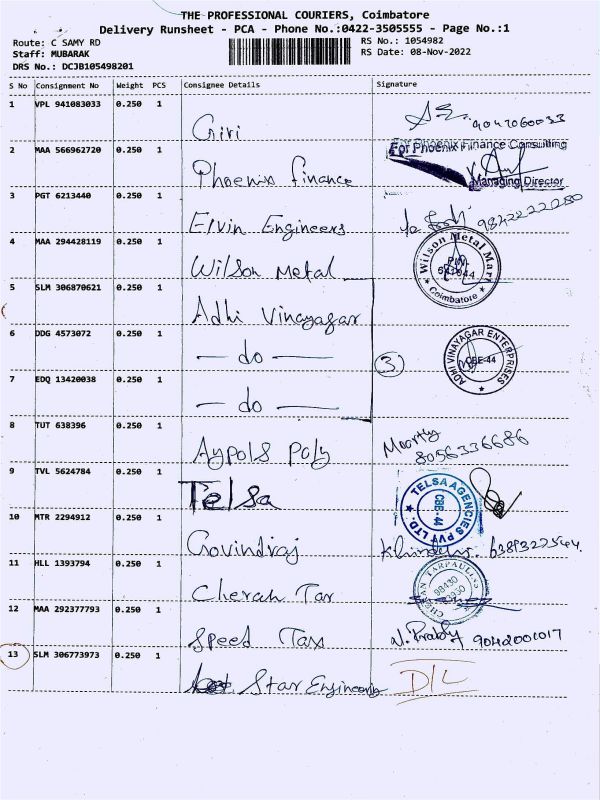 THE PROFESSIONAL COURIERS, Coimbatore
Delivery Runsheet - PCA - Phone No.:0422-3505555 - Page No.:1
Route: C SAMY RD
RS No.: 1054982
Staff: MUBARAK
RS Date: 08-Nov-2022
DRS No.: DCJB105498201
S No Consignment No Weight PCS Consignee Details Signature
1 VPL 941083033 0.250 1
Giri 9042060033
2 MAA 566962720 0.250 1
For Phoenix Finance Consulting
Phoenix finance
Managing Director
3 PGT 6213440 0.250 1
Elvin Engineers 9842222280
4 MAA 294428119 0.250 1
Wilson Metal
Wilson Metal Mart
Coimbatore
5 SLM 306870621 0.250 1
Adhi Vinayagar
6 DDG 4573072 0.250 1
— do —
3
ADHI VINAYAGAR ENTERPRISES
CBE-44
7 EDQ 13420038 0.250 1
— do —
8 TUT 638396 0.250 1
Aypols Poly Moorthy
8056336686
9 TVL 5624784 0.250 1
Telsa
TELSA AGENCIES PVT LTD.
CBE-44
10 MTR 2294912 0.250 1
Govindraj
11 HLL 1393794 0.250 1
Cheran Tar
12 MAA 292377793 0.250 1
Speed Tax N. Prabhu 9042001017
13 SLM 306773973 0.250 1
Star Engineering D/L